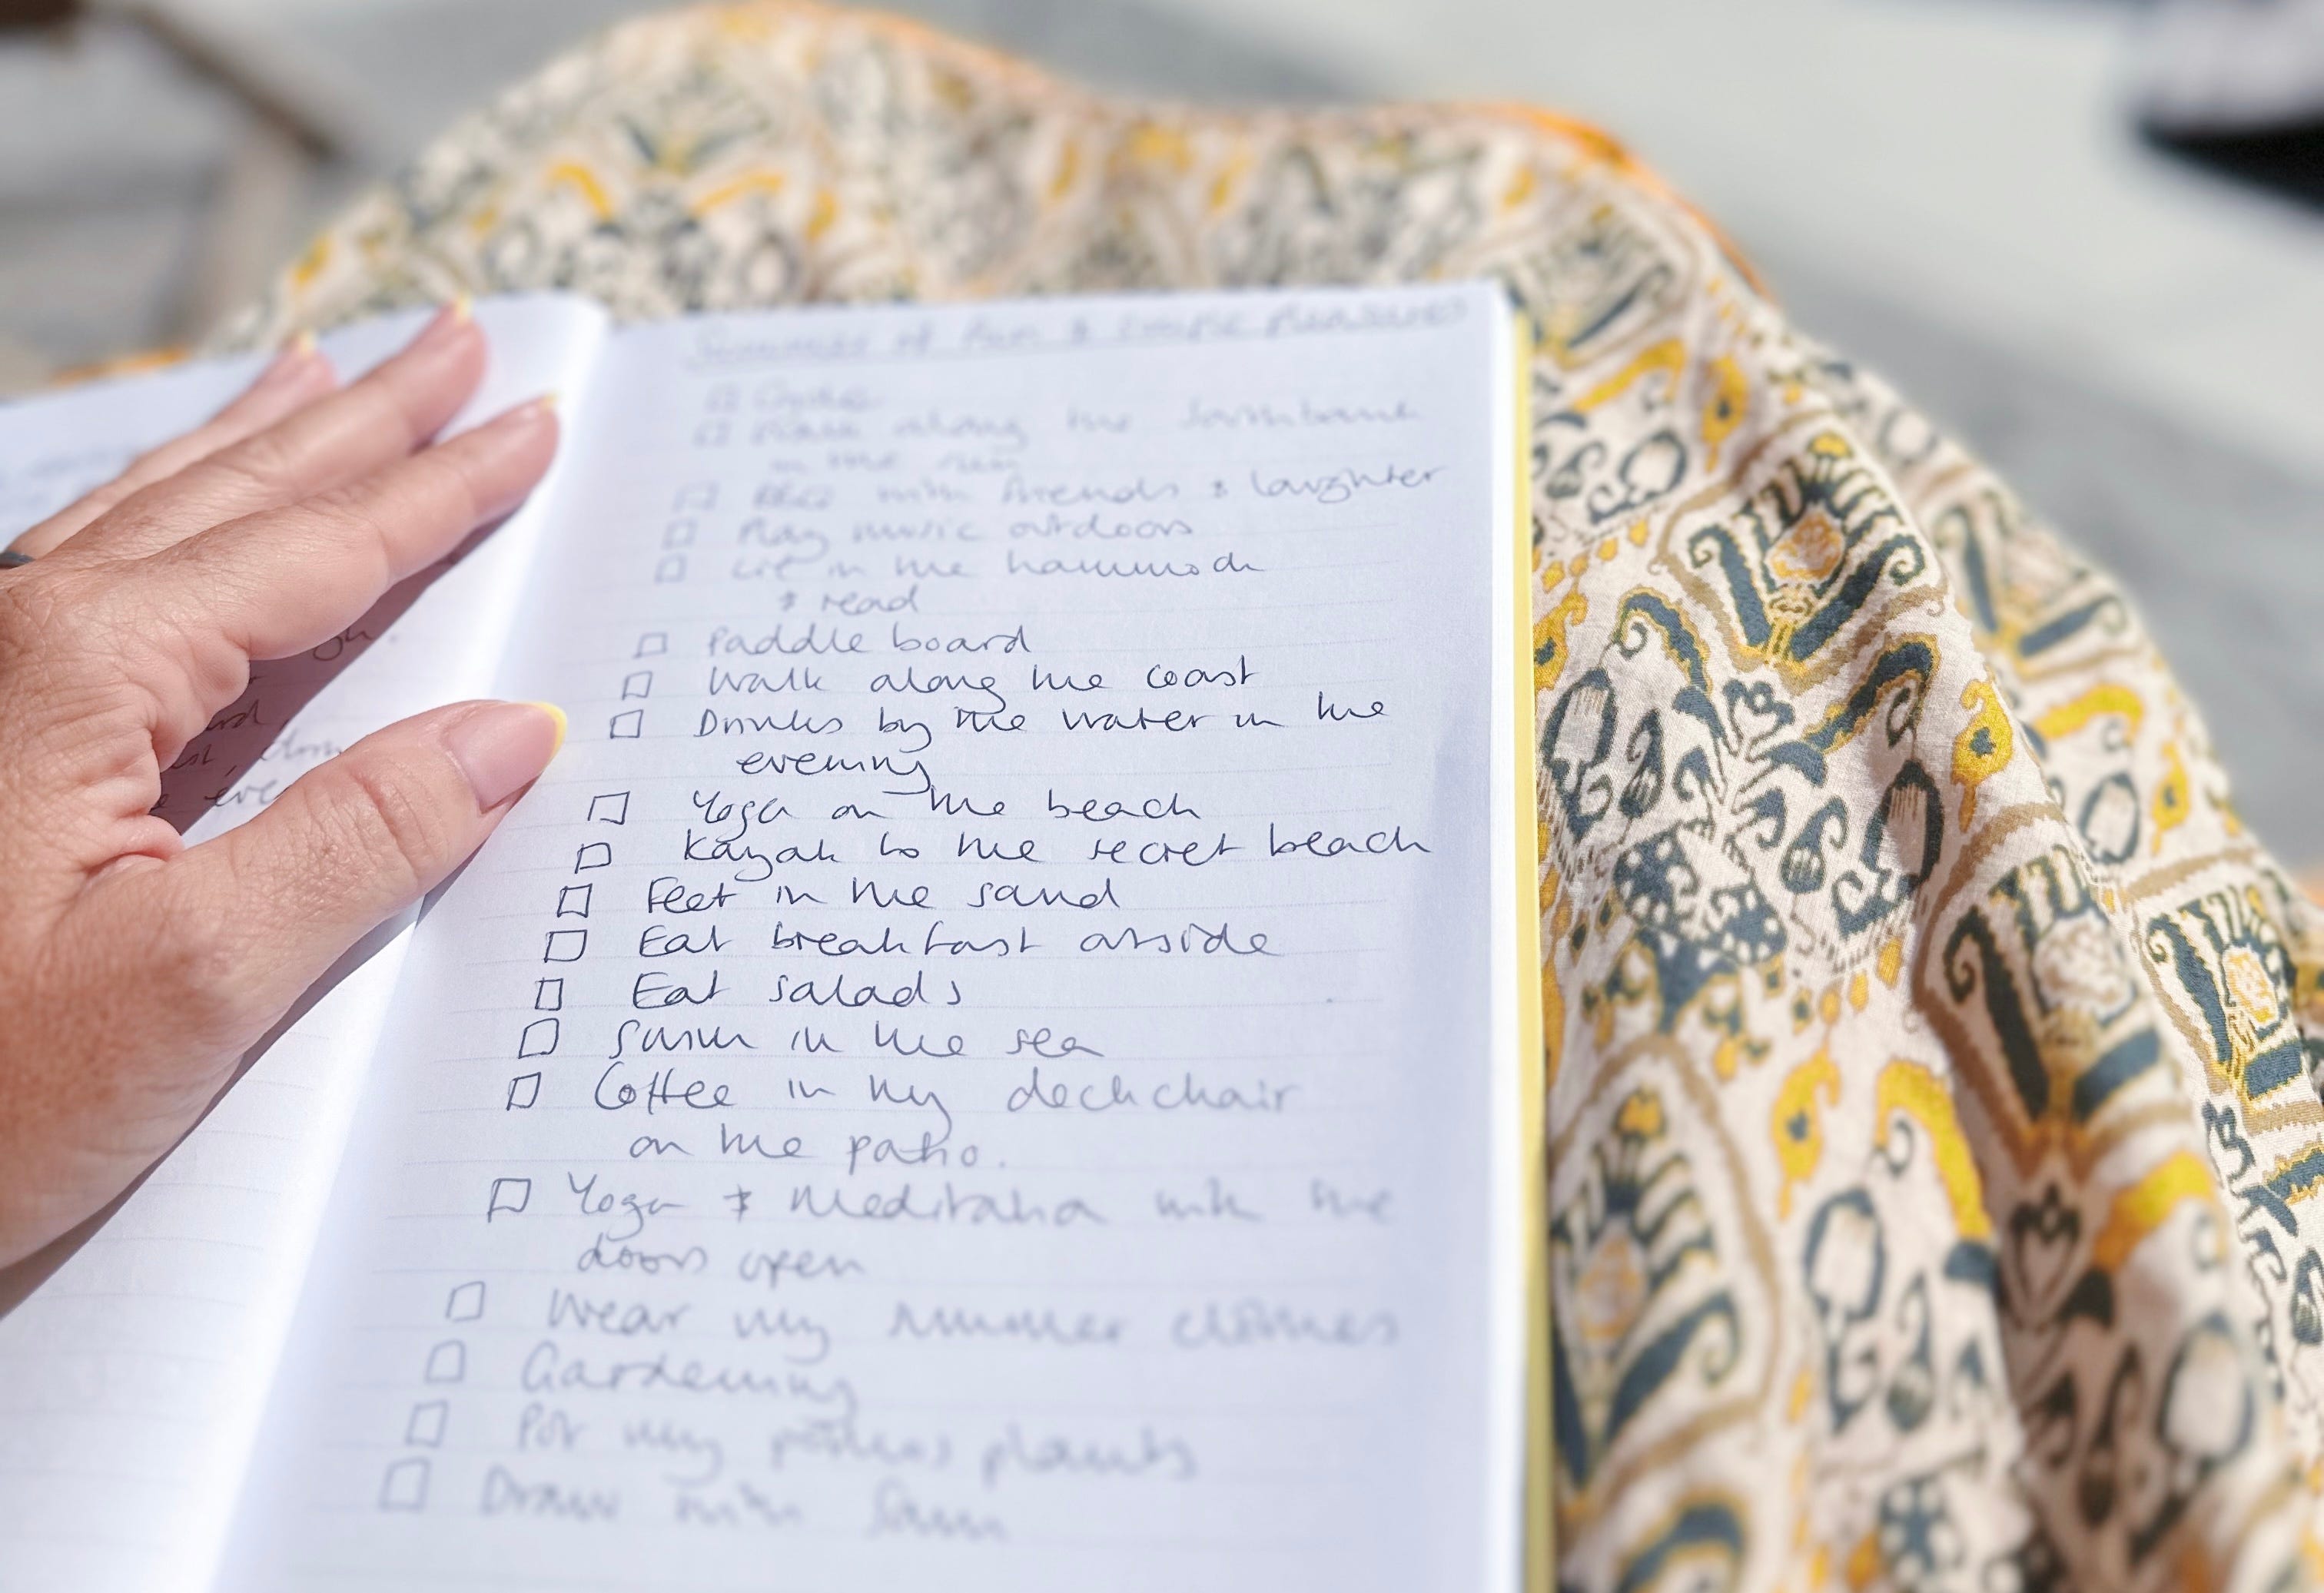 Summer of Fun & simple pleasures
along the
in the sun
BBQ with friends & laughter
Play music outdoors
Lie in the hammock
& read
Paddle board
Walk along the coast
Drinks by the water in the
evening
Yoga on the beach
Kayak to the secret beach
Feet in the sand
Eat breakfast outside
Eat salads
Swim in the sea
Coffee in my deckchair
on the patio.
Yoga & Meditation with the
doors open
Wear my summer clothes
Gardening
Pot my plants
Draw with Sam